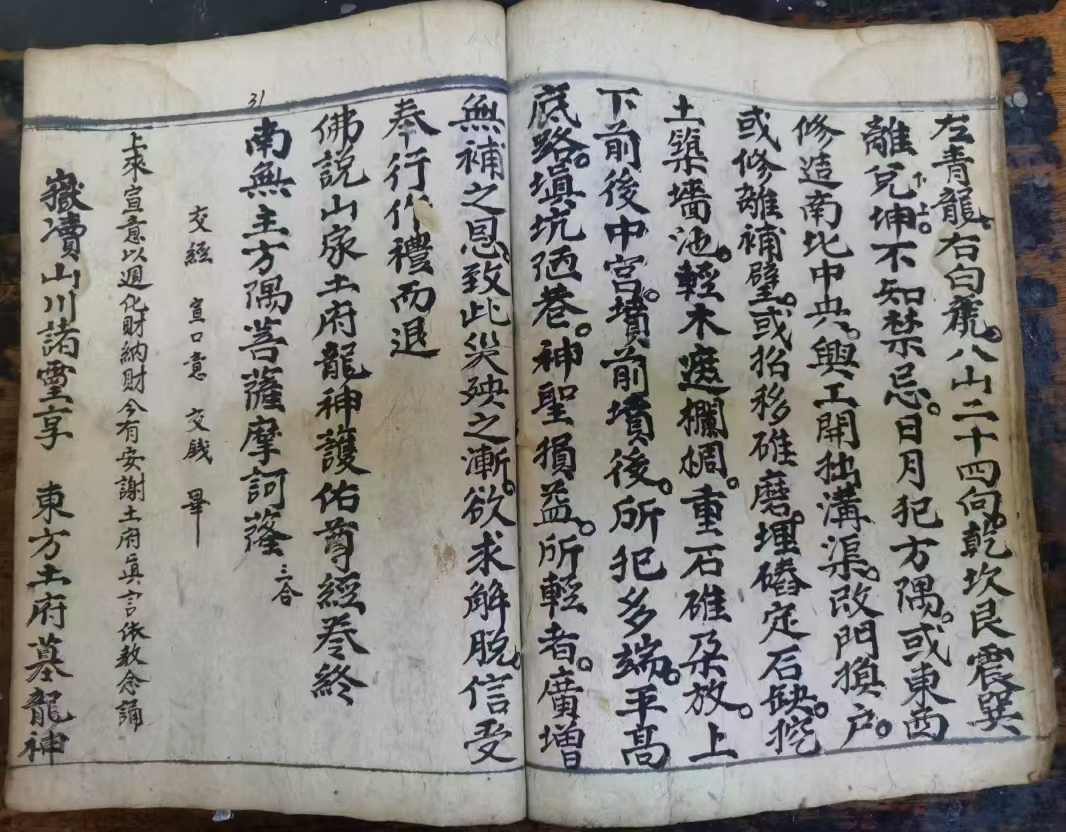 左青龍。右白虎。八山二十四向。乾坎艮震巽
離兌坤。不知禁忌。日月犯方隅。或東西
下上
修造南北中央。興工開拙溝渠。改門換户。
或修離補壁。或抬移碓磨。埋磉定石缺。挖
土築墻池。輕木遮攔椆。重石碓朶放。上
下前後中宮。墳前墳後。所犯多端。平高
底路。填坑陋巷。神聖損益。所輕者。廣增
無補之恩。致此災殃之漸。欲求解脱。信受
奉行作禮而退
佛説山家土府龍神護佑尊經卷終
31
南無主方隅菩薩摩訶薩 三合
交經 宣口意 交錢 畢
上來宣意以週化財納財今有安謝土府眞言依教念誦
嶽瀆山川諸靈享 東方土府墓龍神